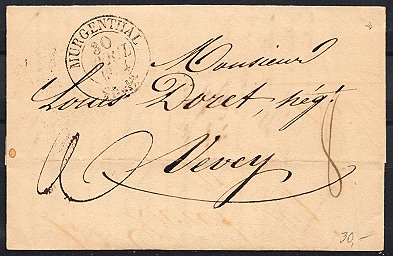 MURGENTHAL
20
Monsieur
Louis Doret, nég.
à Vevey
8
30,-